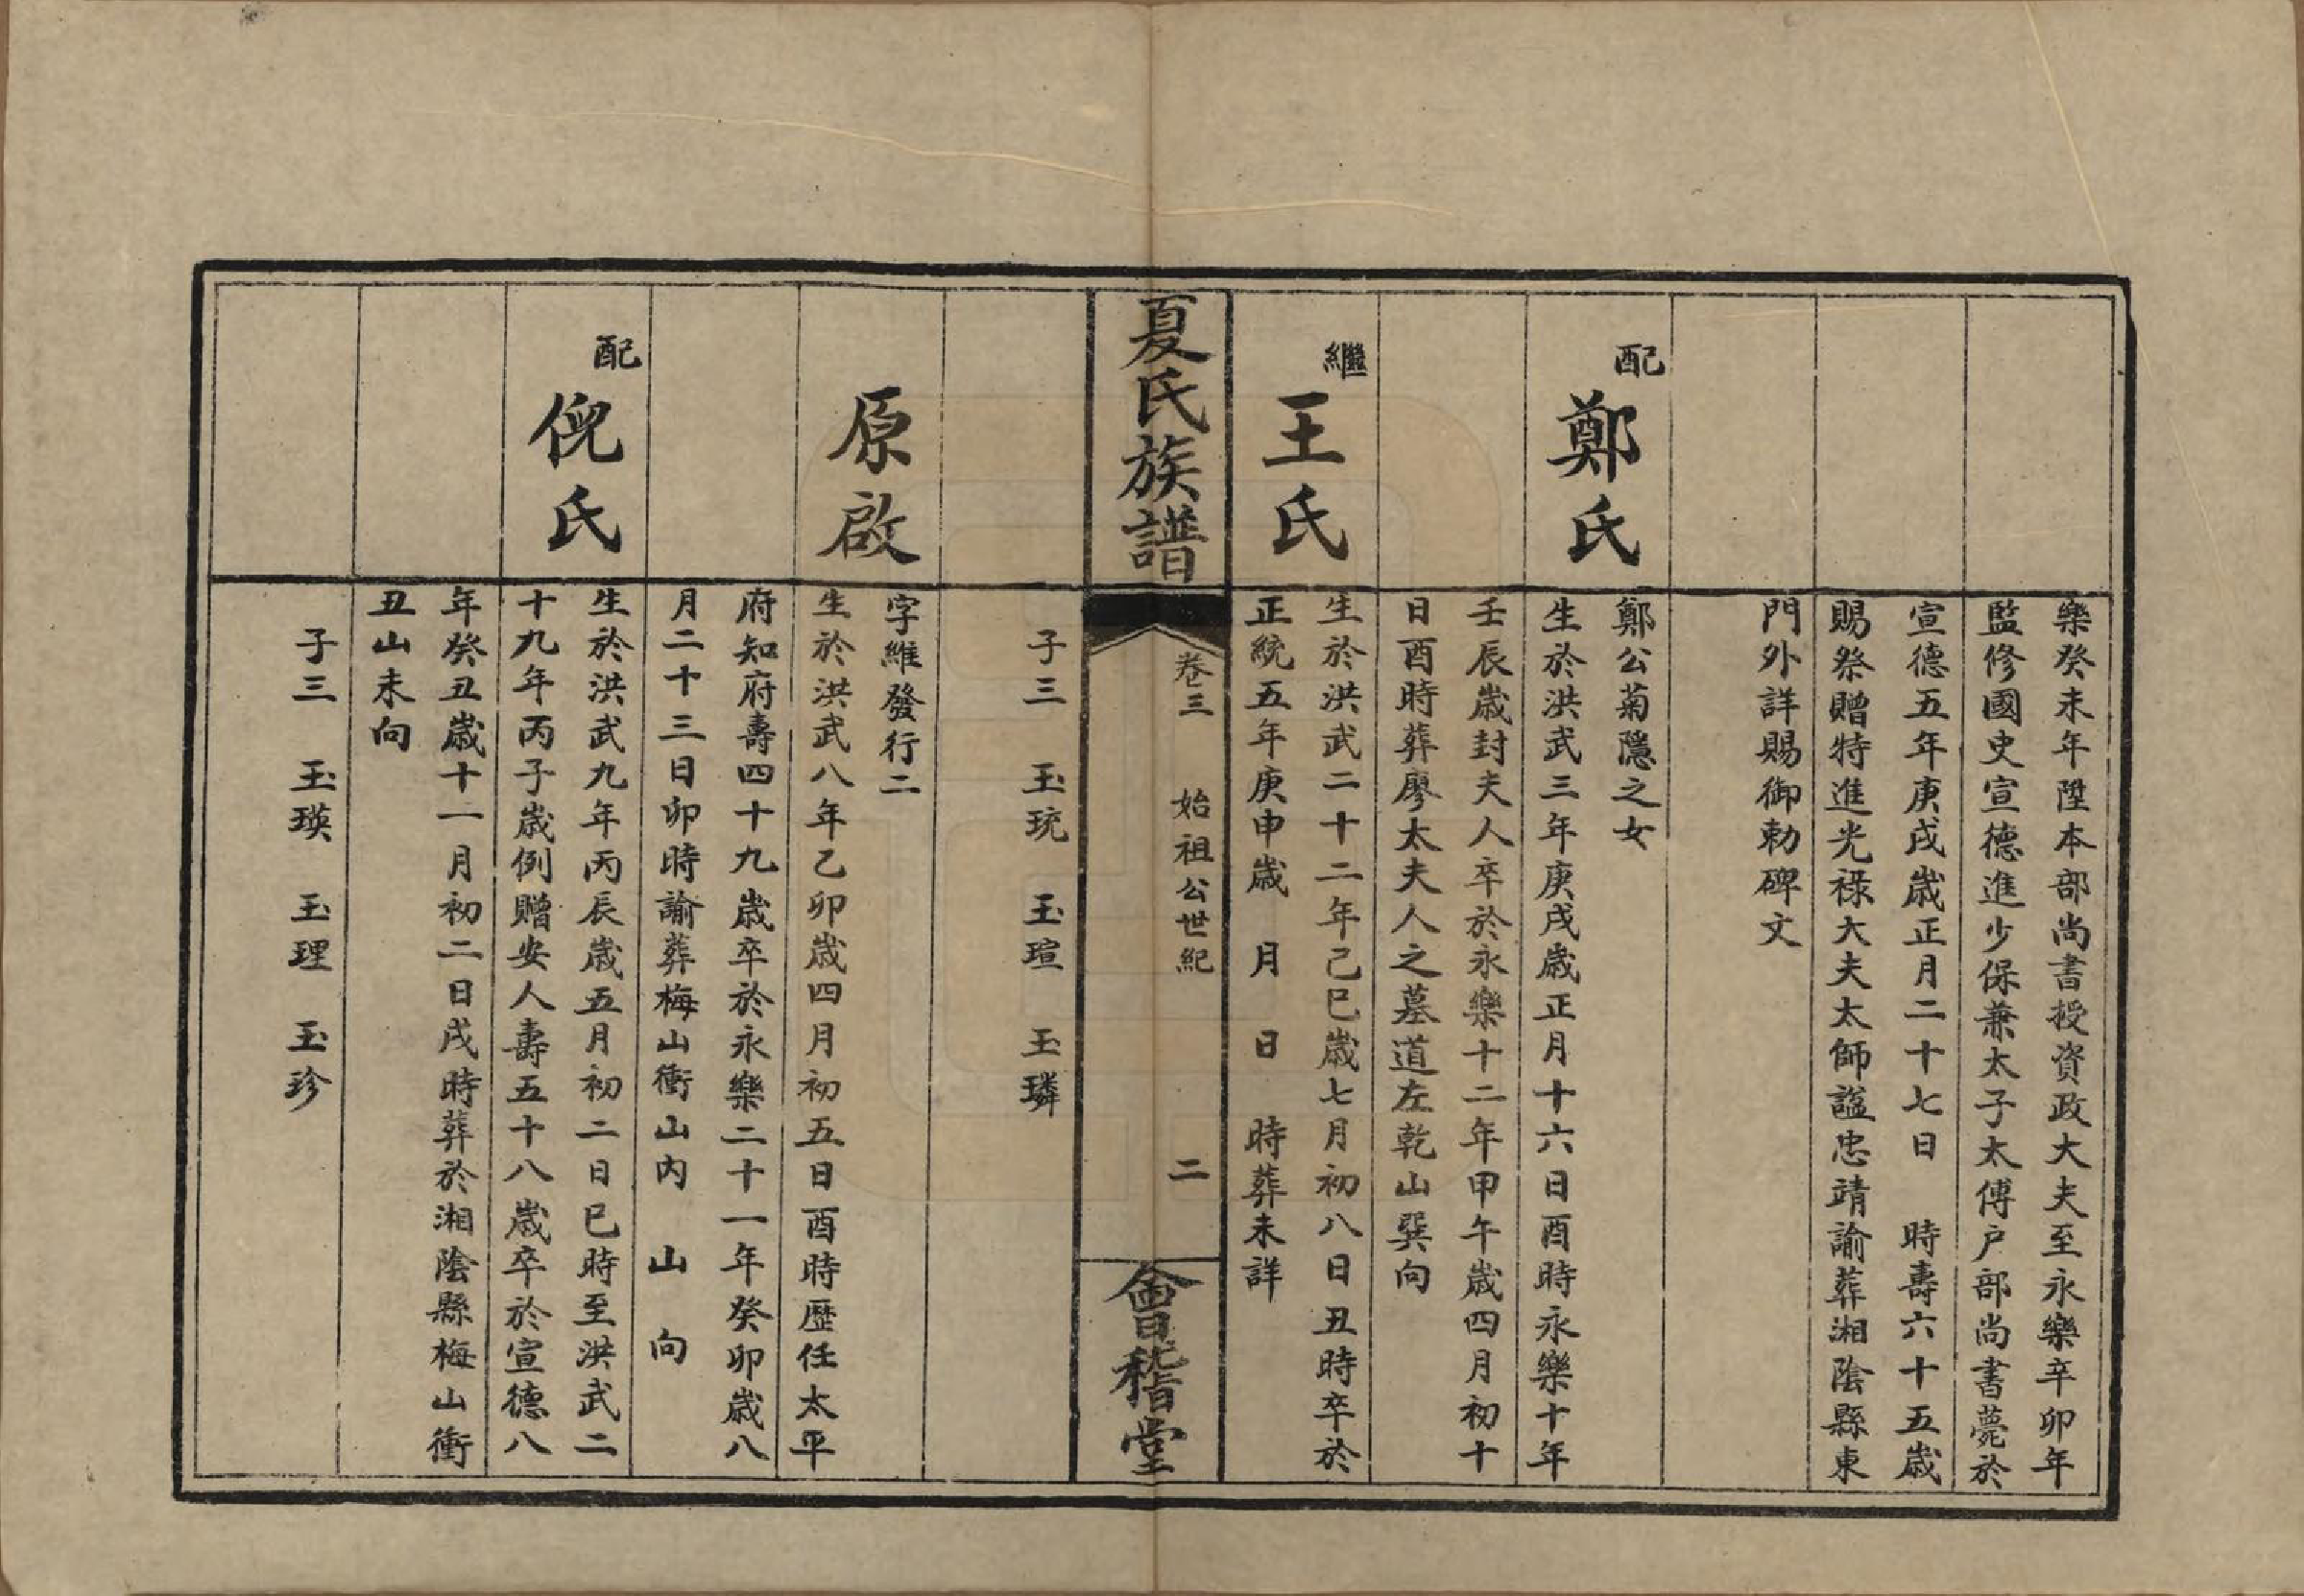 樂癸未年陞本部尚書授資政大夫至永樂卒卯年
監修國史宣德進少保兼太子太傅户部尚書薨於
宣德五年庚戌歲正月二十七日　時壽六十五歲
賜祭贈特進光祿大夫太師謚忠靖諭葬湘陰縣東
門外詳賜御勅碑文
配
鄭氏
鄭公菊隱之女
生於洪武三年庚戌歲正月十六日酉時永樂十年
壬辰歲封夫人卒於永樂十二年甲午歲四月初十
日酉時葬廖太夫人之墓道左乾山巽向
繼
王氏
生於洪武二十二年己巳歲七月初八日丑時卒於
正統五年庚申歲　月　日　時葬未詳
夏氏族譜
卷三　始祖公世紀　二
會稽堂
子三　玉琉　玉瑄　玉璘
原啟
字維發行二
生於洪武八年乙卯歲四月初五日酉時歷任太平
府知府壽四十九歲卒於永樂二十一年癸卯歲八
月二十三日卯時諭葬梅山衝山内　山　向
配
倪氏
生於洪武九年丙辰歲五月初二日巳時至洪武二
十九年丙子歲例贈安人壽五十八歲卒於宣德八
年癸丑歲十一月初二日戌時葬於湘陰縣梅山衝
丑山未向
子三　玉瑛　玉理　玉珍